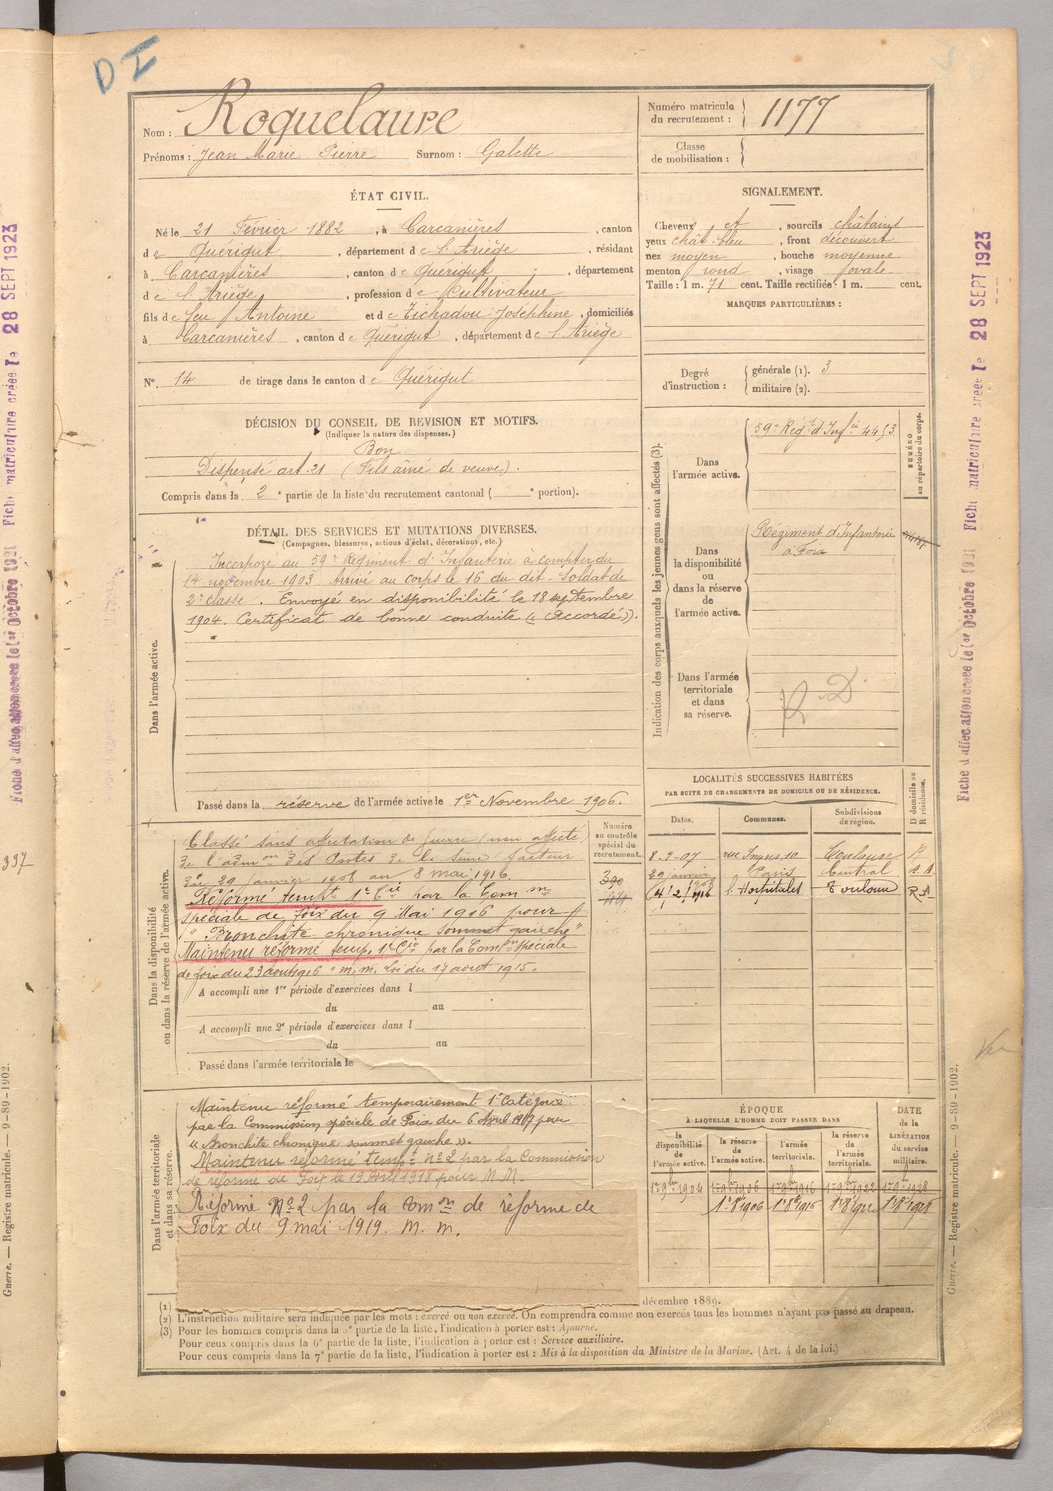 D I
Nom : Roquelaure
Prénoms : Jean Marie Pierre Surnom : Galette
Numéro matricule du recrutement : 1177
Classe de mobilisation :
ÉTAT CIVIL.
Né le 21 Février 1882, à Carcanières, canton
de Quérigut, département de l'Ariège, résidant
à Carcanières, canton de Quérigut, département
de l'Ariège, profession de Cultivateur
fils de feu Antoine et de Tichadou Josephine, domiciliés
à Carcanières, canton de Quérigut, département de l'Ariège
N°. 14 de tirage dans le canton de Quérigut
SIGNALEMENT.
Cheveux et, sourcils châtains
yeux chât. bleu, front découvert
nez moyen, bouche moyenne
menton rond, visage ovale
Taille : 1 m. 71 cent. Taille rectifiée : 1 m. cent.
MARQUES PARTICULIÈRES :
Degré d'instruction : générale (1). 3
militaire (2).
DÉCISION DU CONSEIL DE REVISION ET MOTIFS.
(Indiquer la nature des dispenses.)
Bon
Dispensé art. 21 (Fils aîné de veuve).
Compris dans la 2e partie de la liste du recrutement cantonal ( e portion).
DÉTAIL DES SERVICES ET MUTATIONS DIVERSES.
(Campagnes, blessures, actions d'éclat, décorations, etc.)
Dans l'armée active.
Incorporé au 59e Régiment d'Infanterie à compter du
14 novembre 1903 Arrivé au corps le 16 du dit. Soldat de
2e classe. Envoyé en disponibilité le 18 septembre
1904. Certificat de bonne conduite « Accordé ».
Passé dans la réserve de l'armée active le 1er Novembre 1906.
Indication des corps auxquels les jeunes gens sont affectés (3).
NUMÉRO au répertoire du corps.
Dans l'armée active.
59e Régt d'Infie 4453
Dans la disponibilité ou dans la réserve de l'armée active.
Régiment d'Infanterie
à Foix
Dans l'armée territoriale et dans sa réserve.
R D
Dans la disponibilité ou dans la réserve de l'armée active.
Numéro au contrôle spécial du recrutement.
Classé sans affectation de guerre (non affecté
de l'admon des Postes de la Seine facteur
du 29 janvier 1908 au 8 mai 1916
Réformé tempt 1e Cie par la Comon
spéciale de Foix du 9 Mai 1916 pour
" Bronchite chronique sommet gauche "
Maintenu réformé temp. 1e Cie par la Comon spéciale
de foix du 23 aout 1916 m. m. Loi du 17 aout 1915.
A accompli une 1re période d'exercices dans l
du au
A accompli une 2e période d'exercices dans l
du au
Passé dans l'armée territoriale le
LOCALITÉS SUCCESSIVES HABITÉES
PAR SUITE DE CHANGEMENTS DE DOMICILE OU DE RÉSIDENCE.
Dates. Communes. Subdivisions de région. D domicile ou R résidence.
8-2-07 rue Ingres 10 Toulouse R
29 janvier 1908 Paris Central
4/2/1916 l'Hospitalet Toulouse R.D
Dans l'armée territoriale et dans sa réserve.
Maintenu réformé temporairement 1e Catégorie
par la Commission spéciale de Foix du 6 Avril 1917 pour
« Bronchite chronique sommet gauche ».
Maintenu réformé tempt n°2 par la Commission
de réforme de Foix le 19 Avril 1918 pour M M.
Réformé N°2 par la comon de réforme de
Foix du 9 mai 1919. M. m.
ÉPOQUE
À LAQUELLE L'HOMME DOIT PASSER DANS
la disponibilité de l'armée active. la réserve de l'armée active. l'armée territoriale. la réserve de l'armée territoriale.
DATE de la LIBÉRATION du service militaire.
1er 9bre 1904 1er 9bre 1906 1er 9bre 1916 1er 9bre 1922 1er 9bre 1928
(1) décembre 1889.
(2) L'instruction militaire sera indiquée par les mots : exercé ou non exercé. On comprendra comme non exercés tous les hommes n'ayant pas passé au drapeau.
(3) Pour les hommes compris dans la 5e partie de la liste, l'indication à porter est : Ajourné.
Pour ceux compris dans la 6e partie de la liste, l'indication à porter est : Service auxiliaire.
Pour ceux compris dans la 7e partie de la liste, l'indication à porter est : Mis à la disposition du Ministre de la Marine. (Art. 4 de la loi.)
Guerre. — Registre matricule. — 9-89-1902.
Guerre. — Registre matricule. — 9-89-1902.
337
Fiche d'affectation créée le 1er Octobre 1921 Fiche matriculaire créée le 28 SEPT 1923
Fiche d'affectation créée le 1er Octobre 1921 Fiche matriculaire créée le 28 SEPT 1923